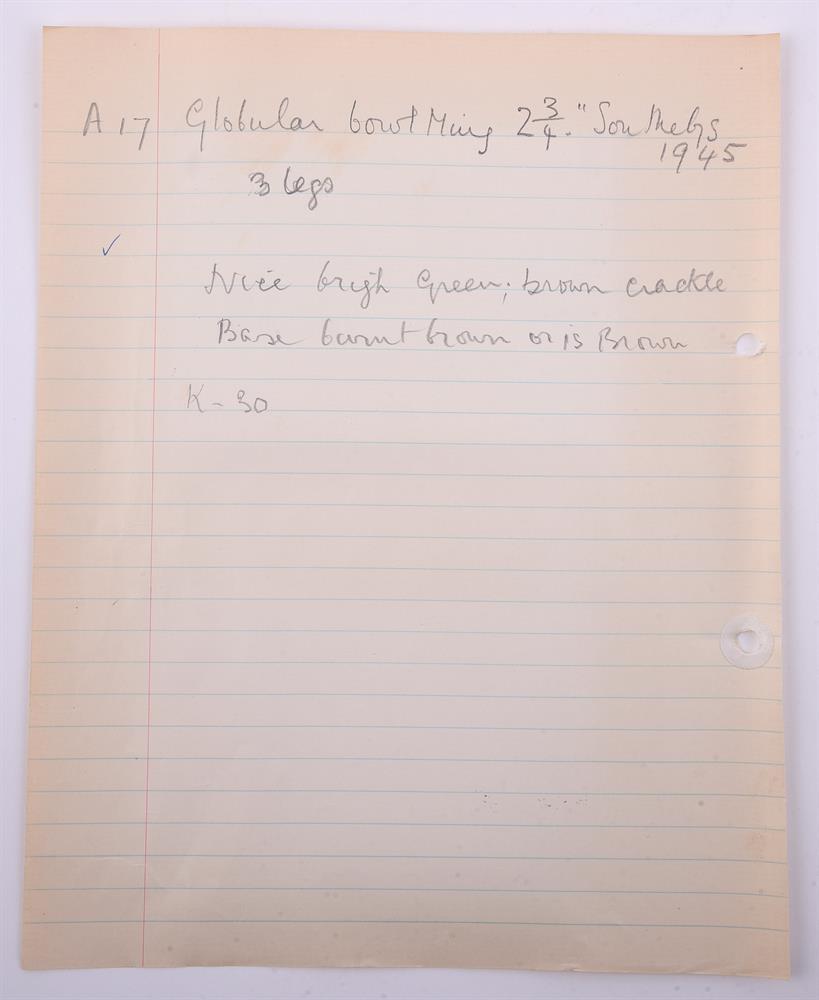 A 17 Globular bowl Ming 2 3/4." Southebys
1945
3 legs
✓
Nice brigh Green; brown crackle
Base burnt brown or is Brown
K - 30